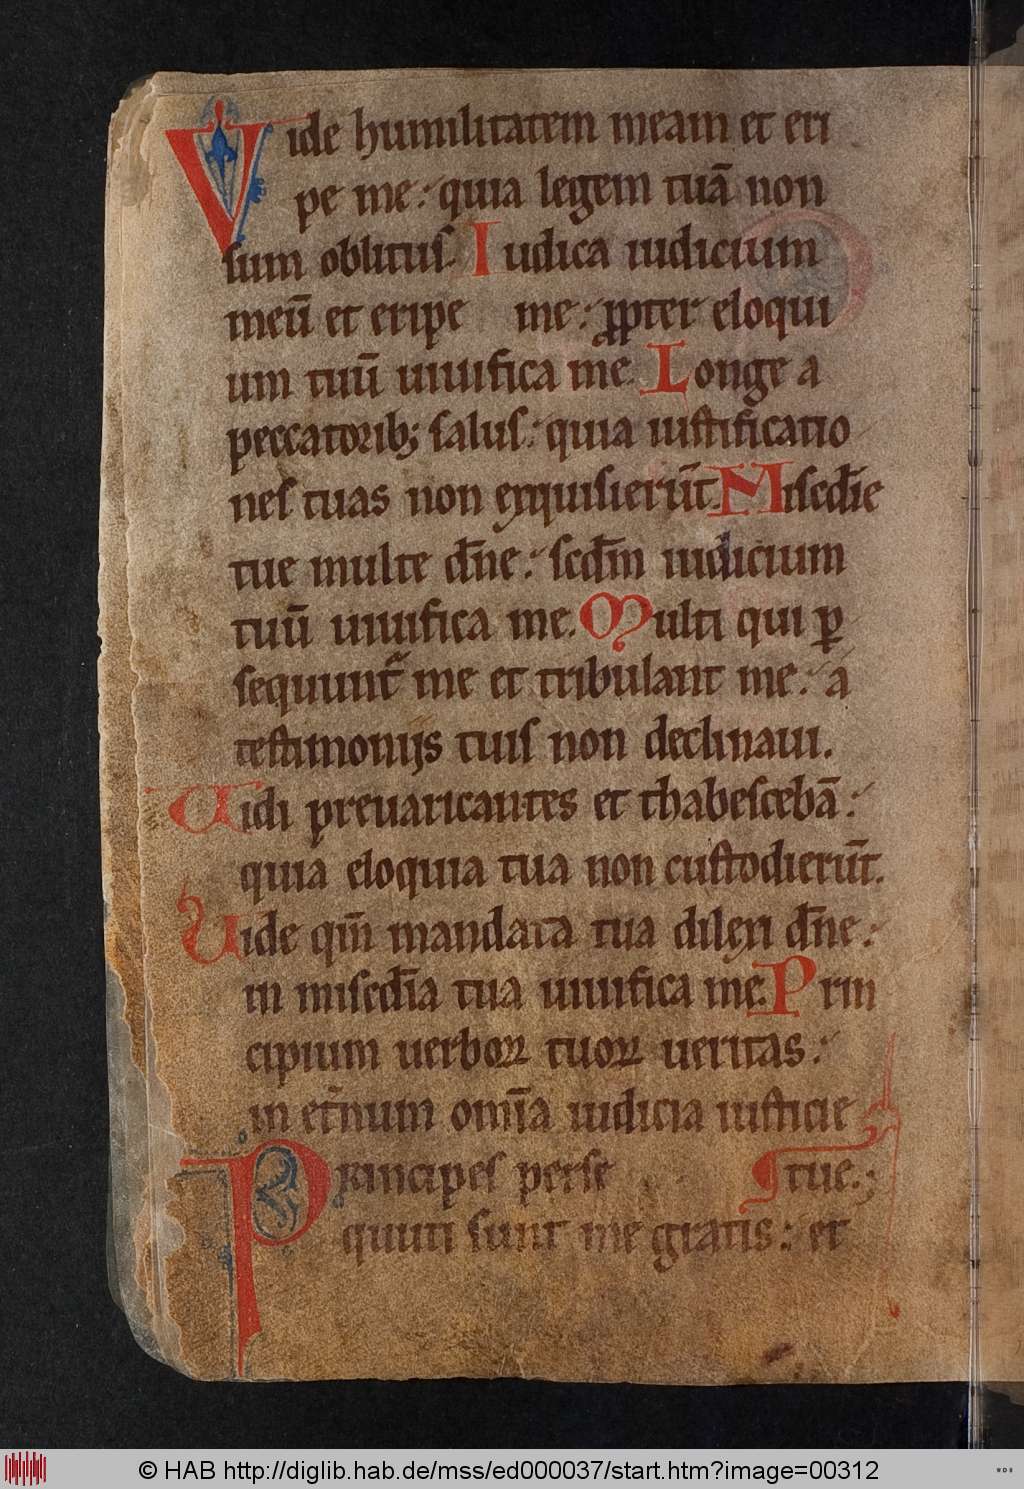 Vide humilitatem meam et eri
pe me: quia legem tuā non
sum oblitus. Iudica iudicium
meū et eripe me: ꝓpter eloqui
um tuū uiuifica me. Longe a
peccatorib; salus: quia iustificatio
nes tuas non exquisierūt. Misc̄die
tue multe dn̄e: scd̄m iudicium
tuū uiuifica me. Multi qui ꝑ
sequunt᷑ me et tribulant me: a
testimonijs tuis non declinaui.
Uidi preuaricantes et thabescebā:
quia eloquia tua non custodierūt.
Uide qm̄ mandata tua dilexi dn̄e:
in miscd̄ia tua uiuifica me. Prin
cipium uerboꝝ tuoꝝ ueritas:
in et̄num omīa iudicia iusticie
Principes perse tue.;
quuti sunt me gratis: et
© HAB http://diglib.hab.de/mss/ed000037/start.htm?image=00312